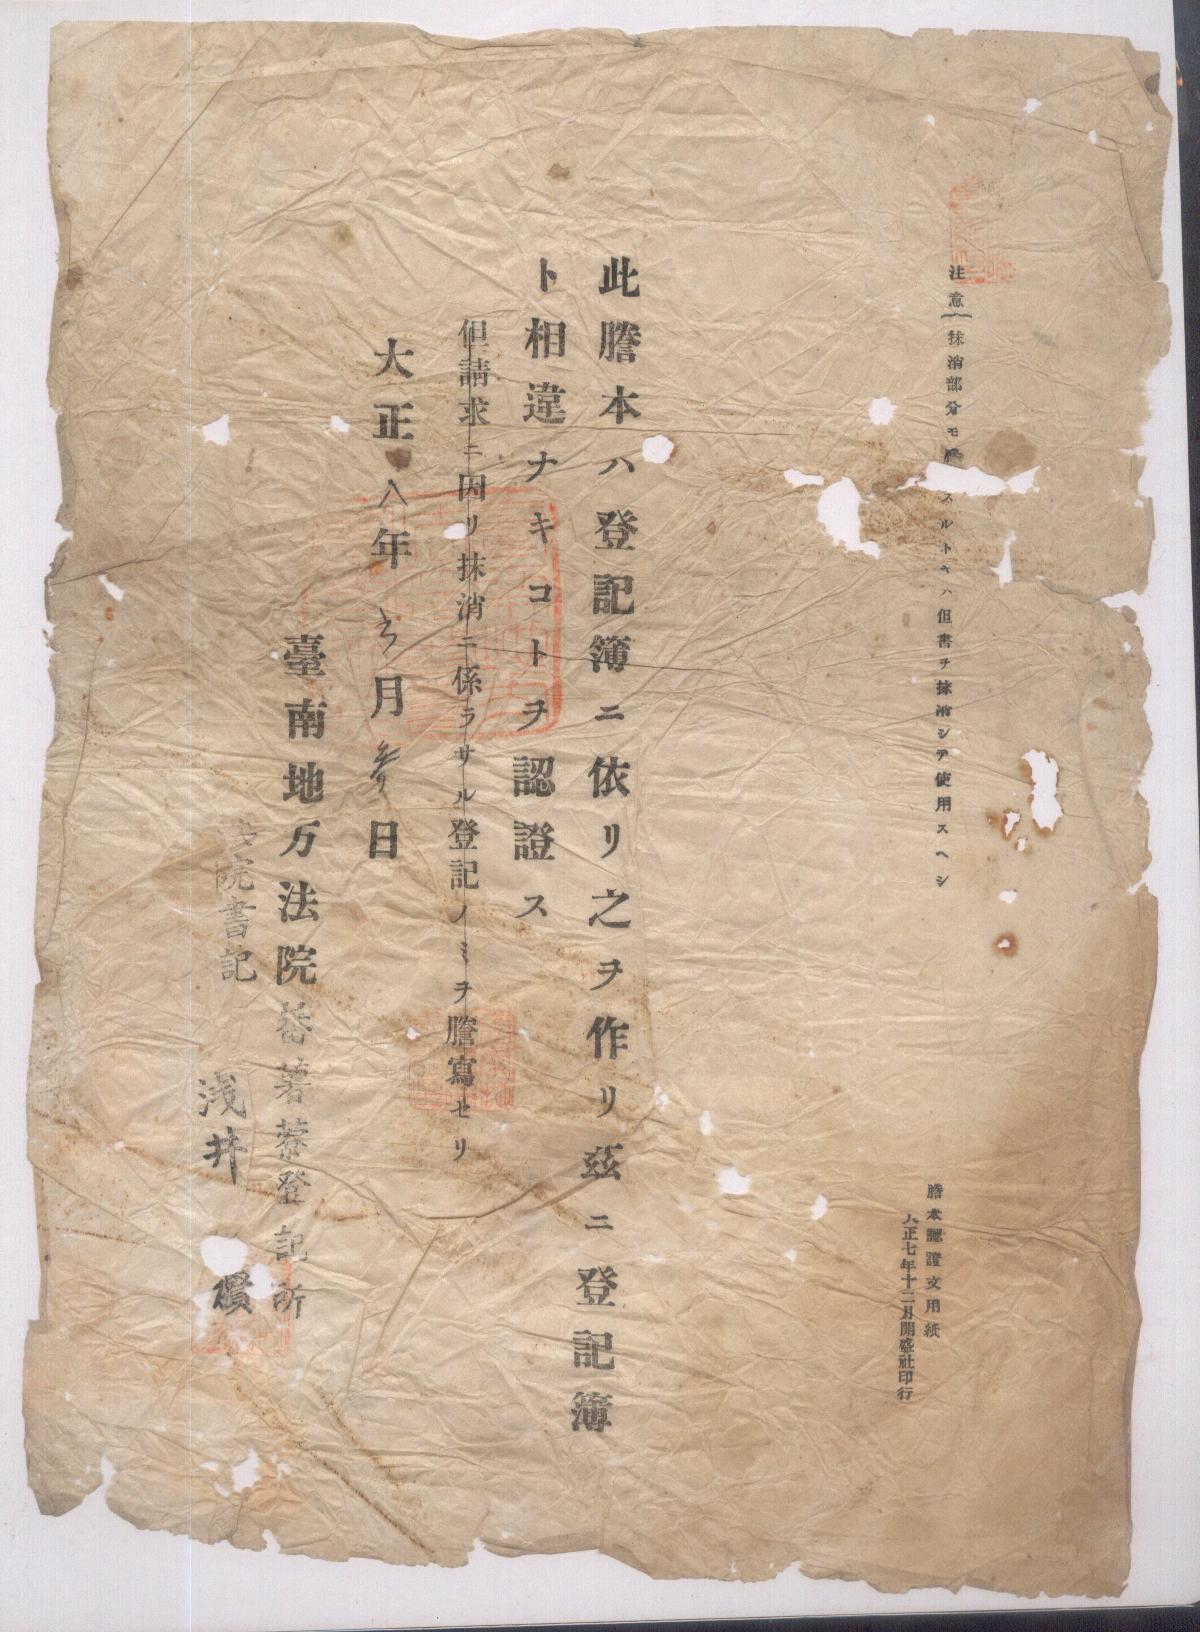 注意{抹消部分モ謄 スルトキハ但書ヲ抹消シテ使用スヘシ
謄本認證文用紙
大正七年十二月開盛社印行
此謄本ハ登記簿ニ依リ之ヲ作リ茲ニ登記簿
ト相違ナキコトヲ認證ス
但請求ニ因リ抹消ニ係ラサル登記ノミヲ謄寫セリ
大正八年 月参日
臺南地方法院蕃薯藔登記所
法院書記
浅井